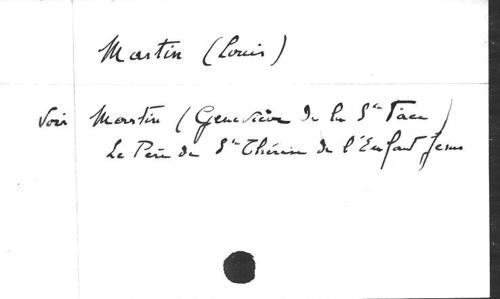 Martin (Louis)
Voir Martin (Geneviève de la Ste Face)
Le Père de Ste Thérèse de l'Enfant Jesus